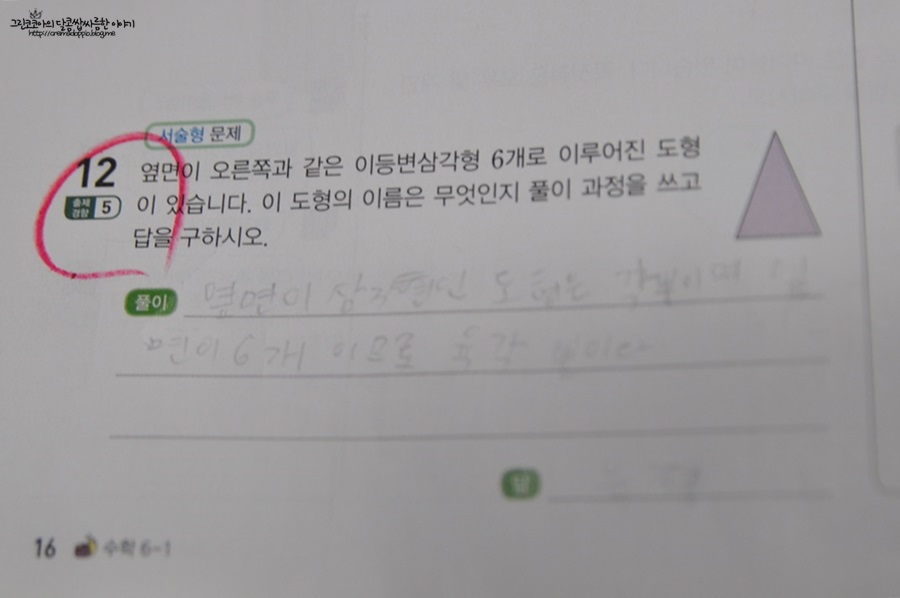 그린코코아의 달콤쌉싸름한 이야기
http://cremadoppio.blog.me
서술형 문제
12 옆면이 오른쪽과 같은 이등변삼각형 6개로 이루어진 도형
출제경향 5 이 있습니다. 이 도형의 이름은 무엇인지 풀이 과정을 쓰고
답을 구하시오.
풀이 옆면이 삼각형인 도형은 각뿔이며 옆
면이 6개 이므로 육각 뿔이다
답
16 수학 6-1